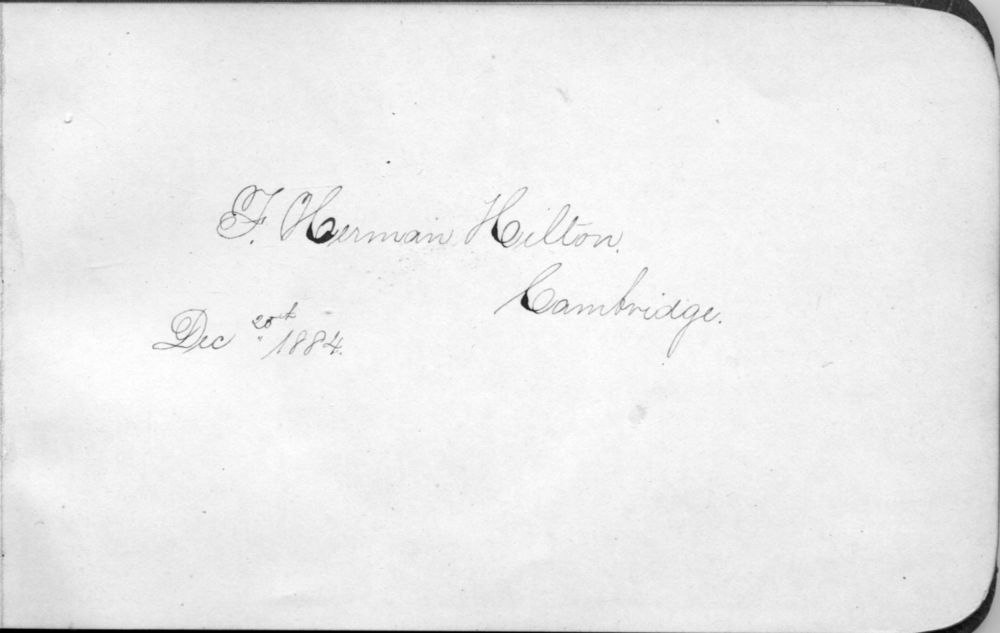 F. Herman Hilton.
Cambridge.
Dec 20t 1884.